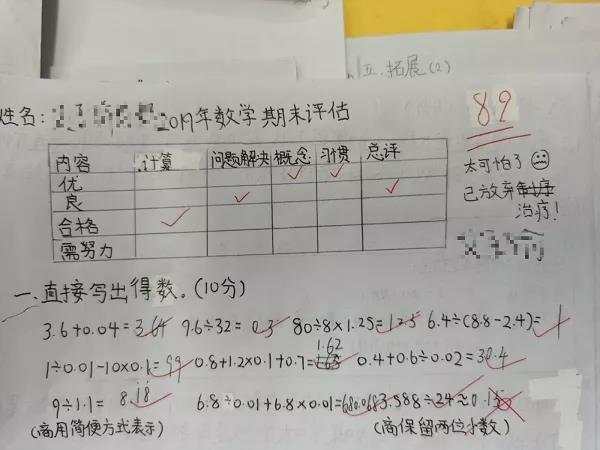 五.拓展(2)
姓名: 2019年数学期末评估
89
内容 计算 问题解决 概念 习惯 总评
优 ✓ ✓
良 ✓ ✓
合格 ✓
需努力
太可怕了☹
已放弃
治疗!
一.直接写出得数。(10分)
3.6+0.04=3.64 9.6÷32=0.3 80÷8×1.25=12.5 6.4÷(8.8-2.4)=1
1÷0.01-10×0.1=99 0.8+1.2×0.1+0.7=1.62 0.4+0.6÷0.02=30.4
9÷1.1=8.18 6.8÷0.01+6.8×0.01=680.068 3.588÷24≈0.15
(商用简便方式表示) (商保留两位小数)